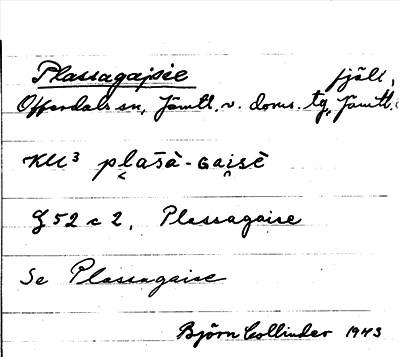 Plassagajsie fjäll,
Offerdals sn, Jämtl. v. doms. tg, Jämtl.
KU³ plas̄à-Gaisè
J 52 c 2, Plassagaise
Se Plassagaise
Björn Collinder 1943